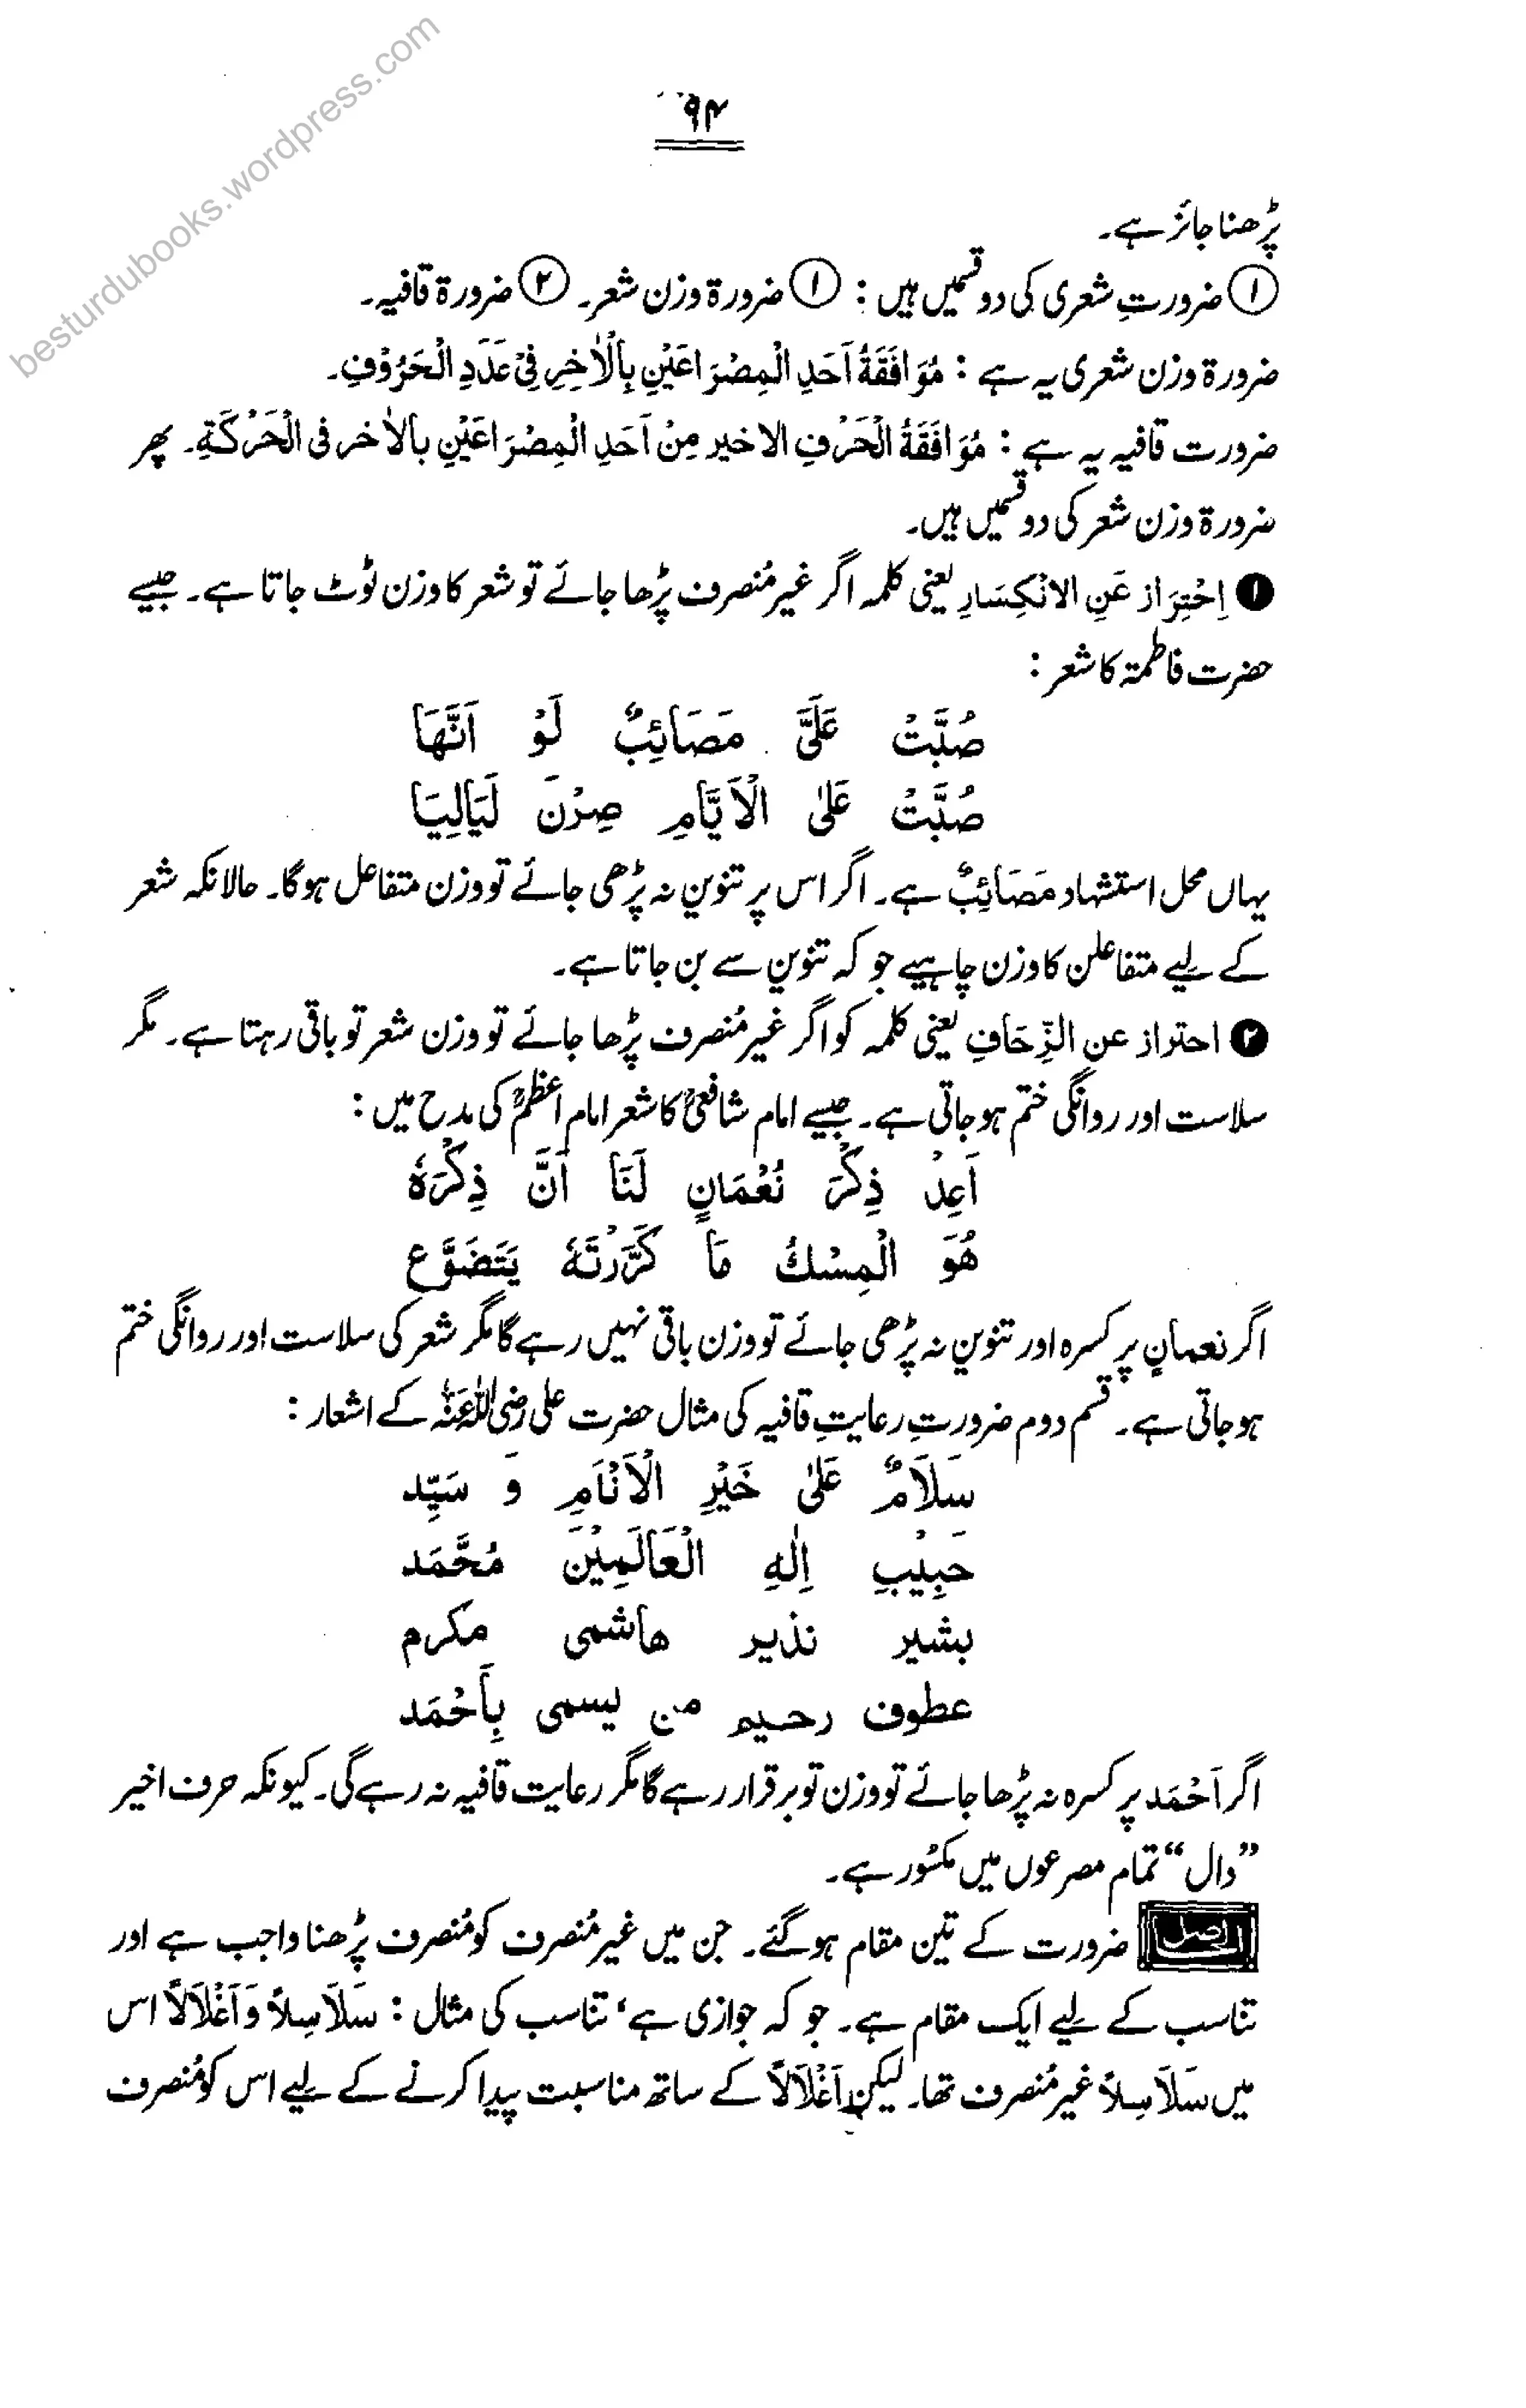 besturdubooks.wordpress.com
۹۴
پڑھنا جائز ہے۔
① ضرورتِ شعری کی دو قسمیں ہیں : ① ضرورۃ وزن شعر۔ ② ضرورۃ قافیہ۔
ضرورۃ وزن شعری یہ ہے : مُوَافَقَةُ اَحَدِ الْمِصْرَاعَيْنِ بِالْاٰخِرِ فِیْ عَدَدِ الْحَرُوْفِ۔
ضرورت قافیہ یہ ہے : مُوَافَقَةُ الْحَرْفِ الاخیر مِنْ اَحَدِ الْمِصْرَاعَيْنِ بالاٰخر فی الْحَرْكَةِ۔ پھر
ضرورۃ وزن شعر کی دو قسمیں ہیں۔
❶ اِحْتِرَاز عَنِ الانْكِسَارِ یعنی کلمہ اگر غیر مُنصرف پڑھا جائے تو شعر کا وزن ٹوٹ جاتا ہے۔ جیسے
حضرت فاطمۃ کا شعر :
صُبَّتْ عَلَیَّ مَصَائِبٌ لَوْ اَنَّهَا
صُبَّتْ عَلٰی الْاَیَّامِ صِرْنَ لَیَالِیَا
یہاں محل استشہاد مَصَائِبٌ ہے۔ اگر اس پر تنوین نہ پڑھی جائے تو وزن متفاعل ہوگا۔ حالانکہ شعر
کے لیے متفاعلن کا وزن چاہیے جو کہ تنوین سے بن جاتا ہے۔
❷ احتراز عن الزِّحَافِ یعنی کلمہ کو اگر غیر مُنصرف پڑھا جائے تو وزن شعر تو باقی رہتا ہے۔ مگر
سلاست اور روانگی ختم ہو جاتی ہے۔ جیسے امام شافعیؒ کا شعر امام اعظمؒ کی مدح میں :
اَعِدْ ذِكْرَ نُعْمَانٍ لَنَا اَنَّ ذِكْرَهٗ
هُوَ الْمِسْكُ مَا كَرَّرْتَهٗ یَتَضَوَّع
اگر نعمانٍ پر کسرہ اور تنوین نہ پڑھی جائے تو وزن باقی نہیں رہے گا مگر شعر کی سلاست اور روانگی ختم
ہو جاتی ہے۔ قسم دوم ضرورتِ رعایتِ قافیہ کی مثال حضرت علی رضی اللہ عنہ کے اشعار :
سَلَامٌ عَلٰی خَیْرِ الْاَنَامِ وَ سَیِّد
حَبِیْبِ اِلٰهِ الْعَالَمِیْنَ مُحَّمَد
بشیر نذیر هاشمی مكرم
عطوف رحیم من یسمی بِاَحْمَد
اگر اَحْمَد پر کسرہ نہ پڑھا جائے تو وزن تو برقرار رہے گا مگر رعایت قافیہ نہ رہے گی۔ کیونکہ حرف اخیر
”دال“ تمام مصرعوں میں مکسُور ہے۔
الحاصل ضرورت کے تین مقام ہو گئے۔ جن میں غیر مُنصرف کو مُنصرف پڑھنا واجب ہے اور
تناسب کے لیے ایک مقام ہے۔ جو کہ جوازی ہے، تناسب کی مثال : سَلَاسِلاً وَ اَغْلَالاً اس
میں سَلَاسِلاً غیر مُنصرف تھا۔ لیکن اَغْلَالاً کے ساتھ مناسبت پیدا کرنے کے لیے اس کو مُنصرف